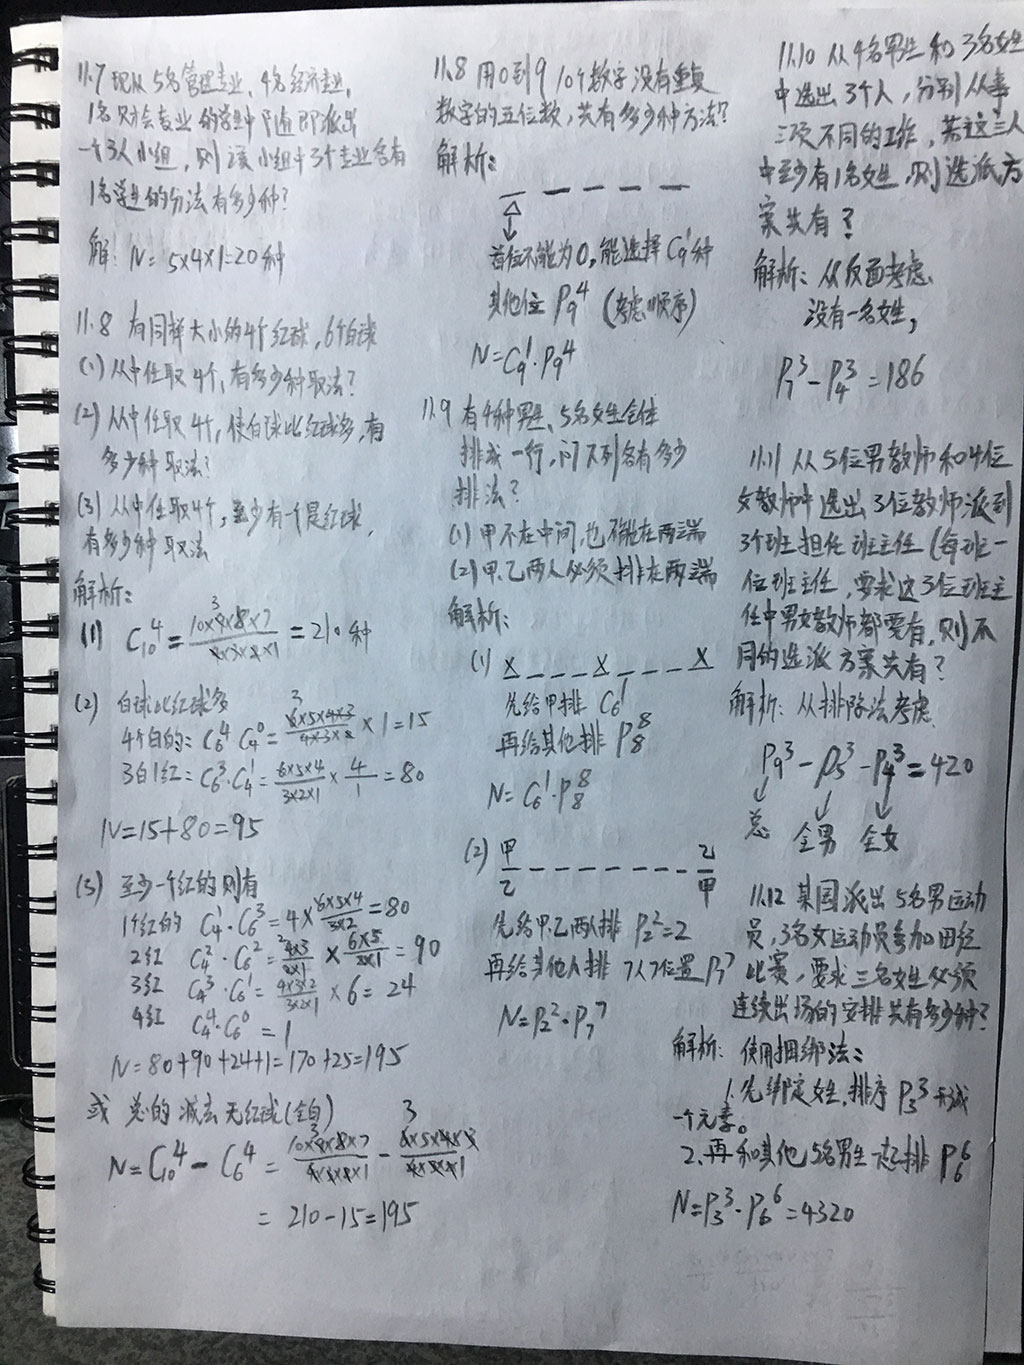 11.7 现从5名管理专业、4名经济专业、
1名财会专业的学生中随即派出
一个3人小组，则该小组中3个专业各有
1名学生的分法有多少种？
解: N=5×4×1=20种
11.8 有同样大小的4个红球，6个白球
(1) 从中任取4个，有多少种取法？
(2) 从中任取4个，使白球比红球多，有
多少种取法？
(3) 从中任取4个，至少有一个是红球，
有多少种取法
解析：
(1) C₁₀⁴ = 10×9×8×7 / 4×3×2×1 = 210种
(2) 白球比红球多
4个白的: C₆⁴ C₄⁰ = 6×5×4×3 / 4×3×2 × 1 = 15
3白1红 = C₆³·C₄¹ = 6×5×4 / 3×2×1 × 4/1 = 80
N=15+80=95
(3) 至少一个红的 则有
1个红的 C₄¹·C₆³ = 4 × 6×5×4 / 3×2 = 80
2红 C₄²·C₆² = 4×3 / 2×1 × 6×5 / 2×1 = 90
3红 C₄³·C₆¹ = 4×3×2 / 3×2×1 × 6 = 24
4红 C₄⁴·C₆⁰ = 1
N=80+90+24+1=170+25=195
或 总的减去无红球(全白)
N=C₁₀⁴ − C₆⁴ = 10×9×8×7 / 4×3×2×1 − 6×5×4×3 / 4×3×2×1
= 210−15=195
11.8 用0到9 10个数字 没有重复
数字的五位数，共有多少种方法？
解析：
首位不能为0，能选择C₉¹种
其他位 P₉⁴ (考虑顺序)
N=C₉¹·P₉⁴
11.9 有4种男生、5名女生全体
排成一行，问下列各有多少
排法？
(1) 甲不在中间，也不能在两端
(2) 甲、乙两人必须排在两端
解析：
(1) X _ _ _ X _ _ _ X
先给甲排 C₆¹
再给其他排 P₈⁸
N=C₆¹·P₈⁸
(2) 甲 _ _ _ _ _ _ _ 乙
乙 甲
先给甲、乙两人排 P₂²=2
再给其他人排 7人7位置 P₇⁷
N=P₂²·P₇⁷
11.10 从4名男生和3名女生
中选出3个人，分别从事
三项不同的工作，若这三人
中至少有1名女生，则选派方
案共有？
解析: 从反面考虑、
没有一名女生，
P₇³−P₄³=186
11.11 从5位男教师和4位
女教师中选出3位教师派到
3个班担任班主任(每班一
位班主任，要求这3位班主
任中男女教师都要有，则不
同的选派方案共有？
解析: 从排除法考虑
P₉³−P₅³−P₄³=420
总 全男 全女
11.12 某国派出5名男运动
员，3名女运动员参加田径
比赛，要求三名女生必须
连续出场的安排共有多少种？
解析: 使用捆绑法:
1.先绑定女生，排序P₃³ 形成
一个元素。
2.再和其他5名男生一起排 P₆⁶
N=P₃³·P₆⁶=4320